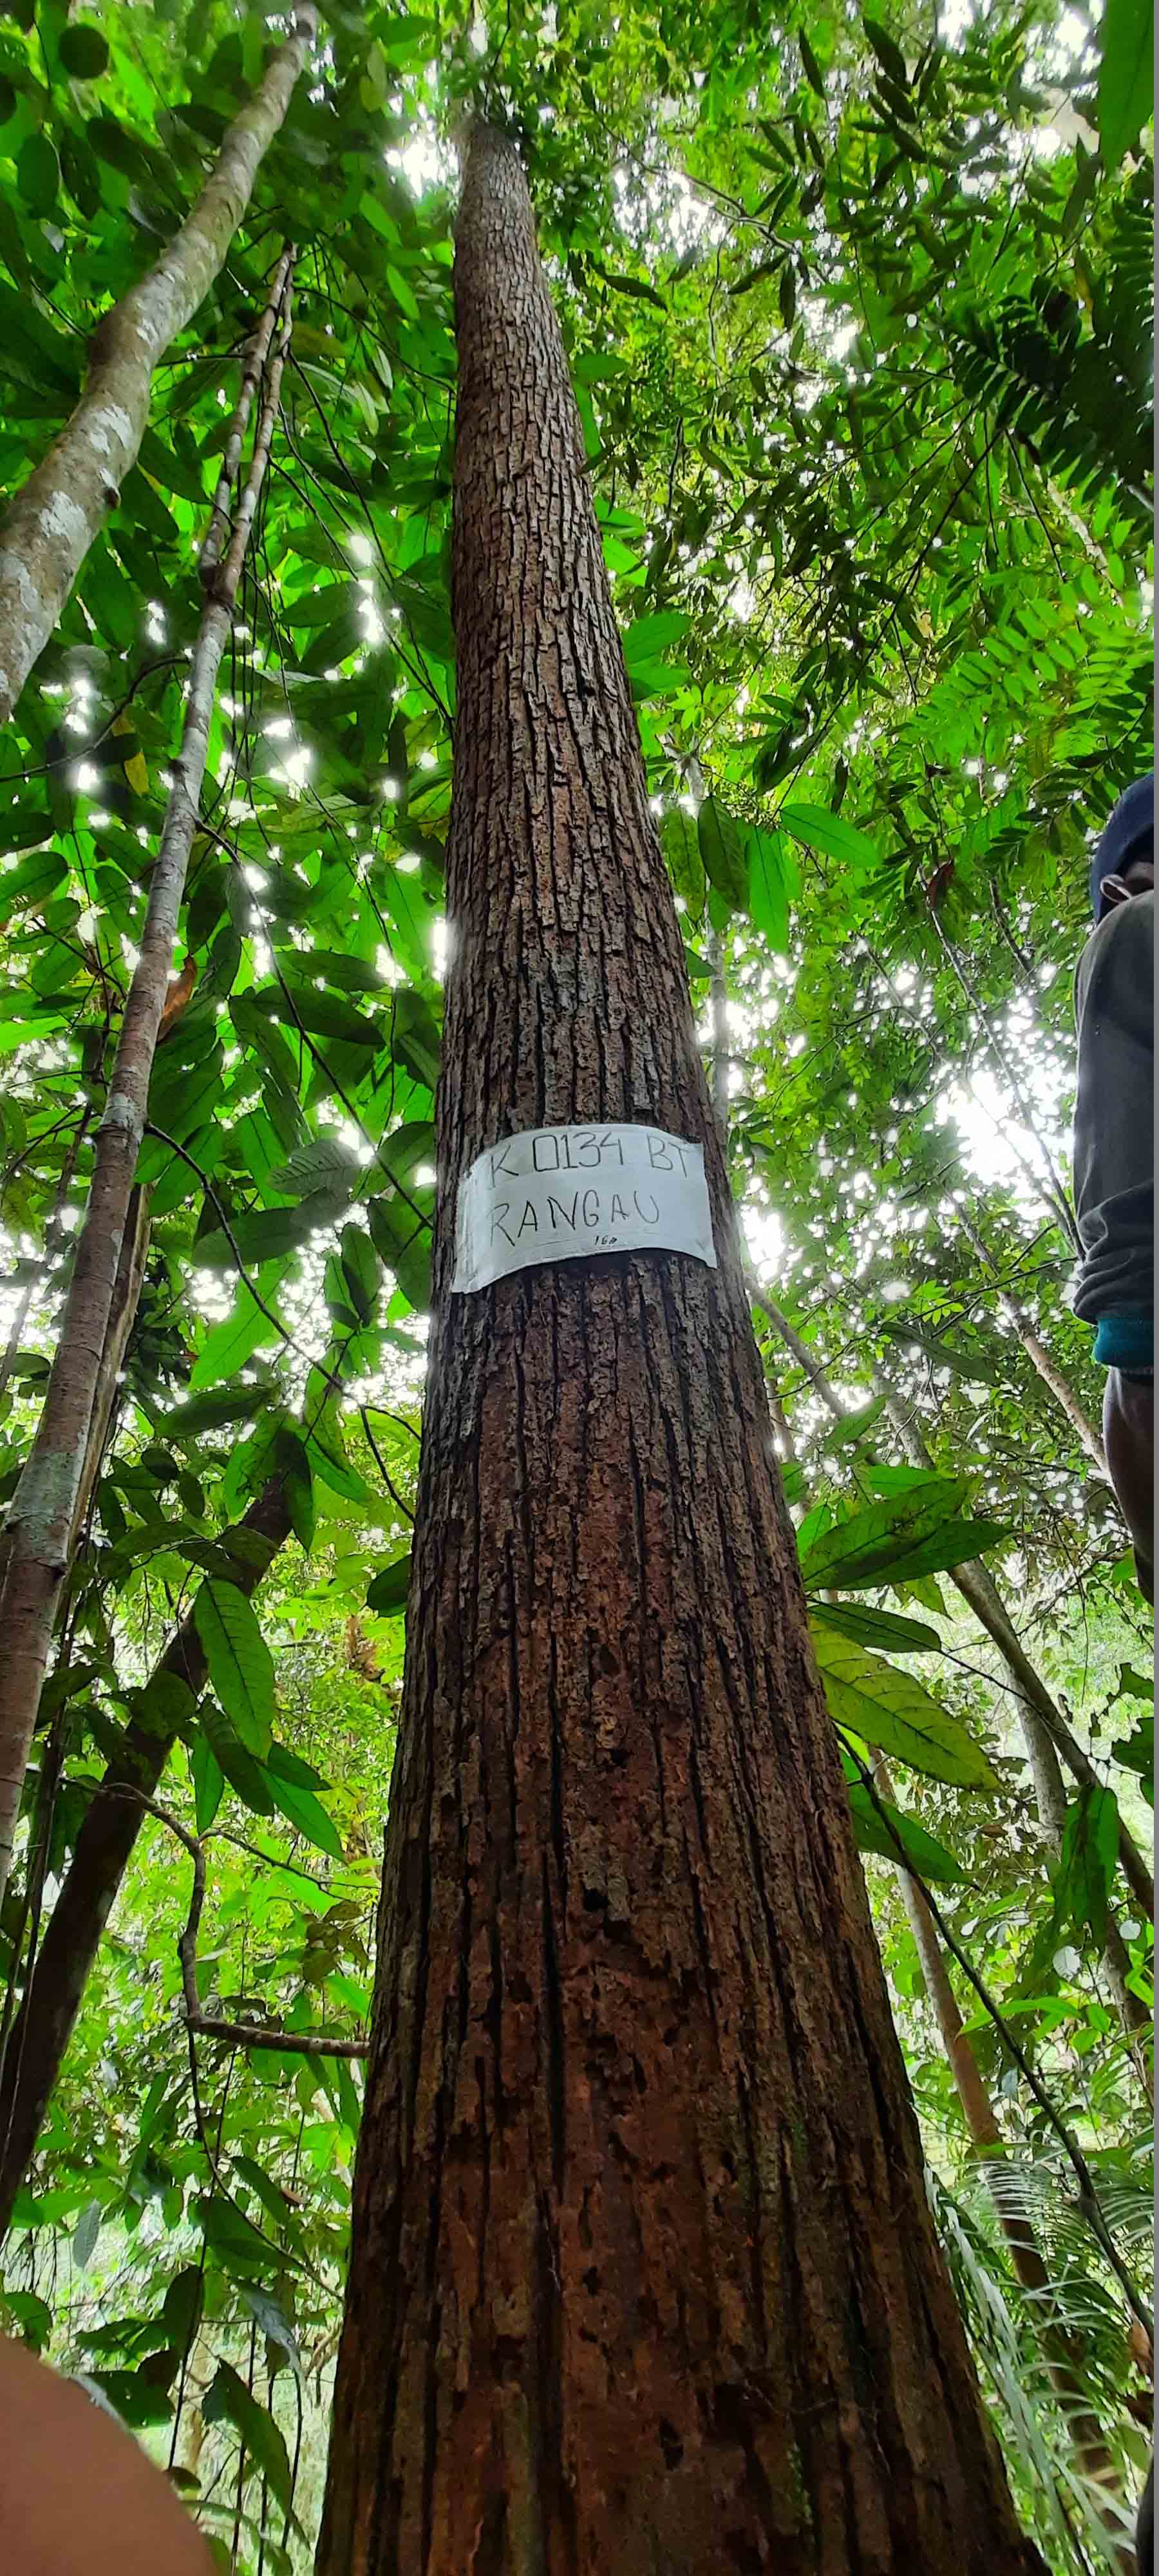 K 0134 BT
RANGAU